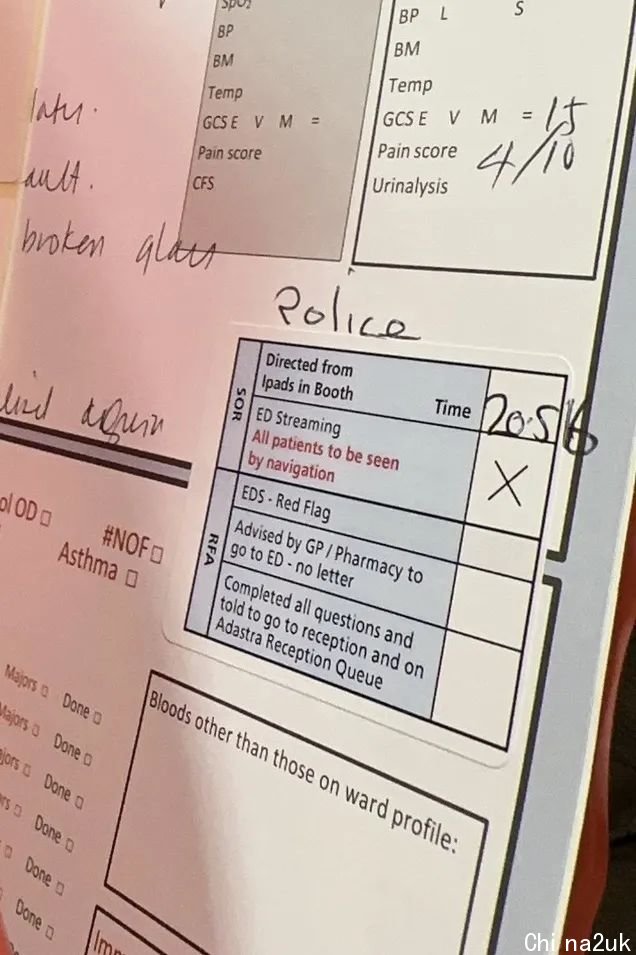 SpO₂
BP
BM
Temp
GCS E V M =
Pain score
CFS
BP L S
BM
Temp
GCS E V M = 15
Pain score 4/10
Urinalysis
later.
ault.
broken glass
Police
SOR
Directed from
Ipads in Booth
Time
ED Streaming
All patients to be seen
by navigation
X
RFA
EDS - Red Flag
Advised by GP / Pharmacy to
go to ED - no letter
Completed all questions and
told to go to reception and on
Adastra Reception Queue
ol OD
#NOF
Asthma
Majors Done
Majors Done
ajors Done
ors Done
Done
Done
Bloods other than those on ward profile:
Imm
Chi na2uk